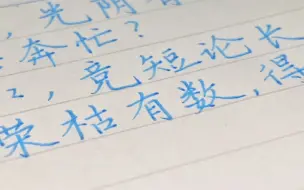 ，光阴
奔忙？
，竞短论长
荣枯有数，得